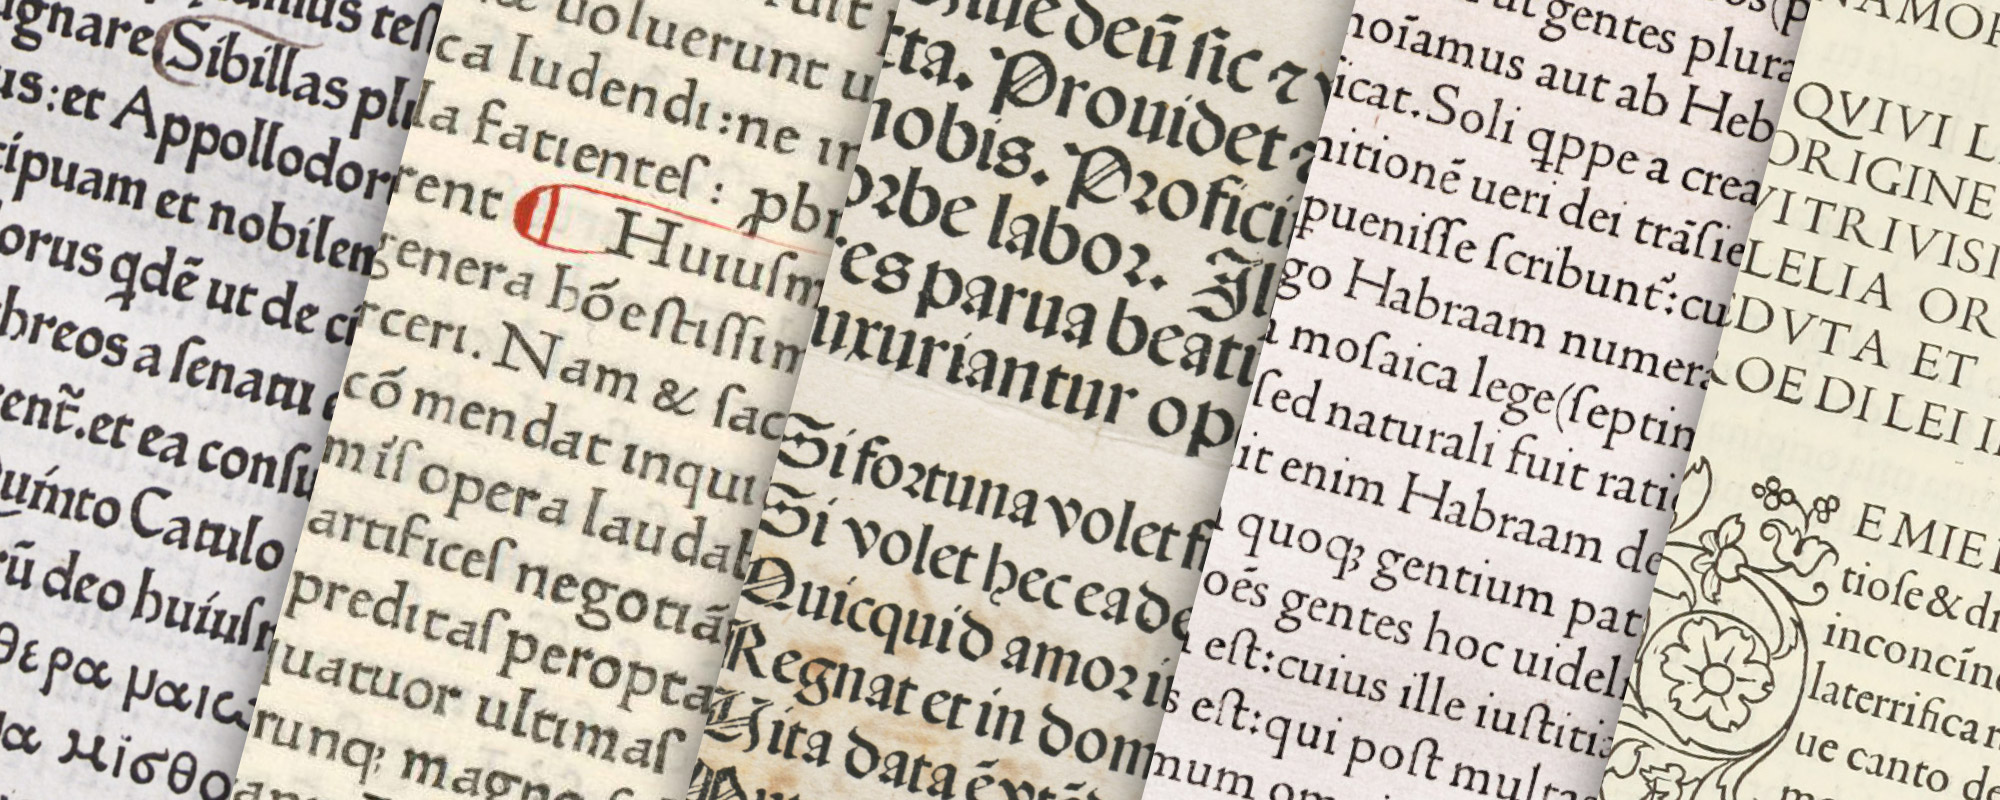 ignare Sibillas pli
us:et Appollodor
cipuam et nobilem
orus qdē ut de ci
breos a ſenatu
rent̃.et ea conſu
Quinto Catulo
rū deo huiuſm
θερα μαισ
α μισθο
uoluerunt u
ca ludendı:ne ın
la facıenteſ: pbr
rent Huıuſm
genera hōeſtıſſım
rcerı. Nam & ſac
cōmendat ınquı
mıſ opera laudab
artıfıceſ negotıā
predıtaſ peropta
quatuor ultımaſ
runq; magno
deū ſic ⁊ v
cta. Prouidet
nobis. Profici
orbe labor. Il
res parua beati
uxuriantur op
Si fortuna volet fi
Si volet hec eade
Quicquid amor i
Regnat et in dom
Vita data ē
ut gentes plura
noīamus aut ab Heb
icat.Soli qppe a crea
nitionē ueri dei trāſie
pueniſſe ſcribunt̃:cu
go Habraam numera
a moſaica lege(ſeptim
ſed naturali fuit ratio
it enim Habraam de
quoq; gentium pat
oēs gentes hoc uidel
eſt:cuius ille iuſtitia
s eſt:qui poſt multas
mum om
NAMOR
QVIVI L
ORIGINE
VITRIVISI
LELIA OR
EDVTA ET
ROE DI LEI I
EMIE
tioſe&d
inconcīne
laterrifica
ue canto de